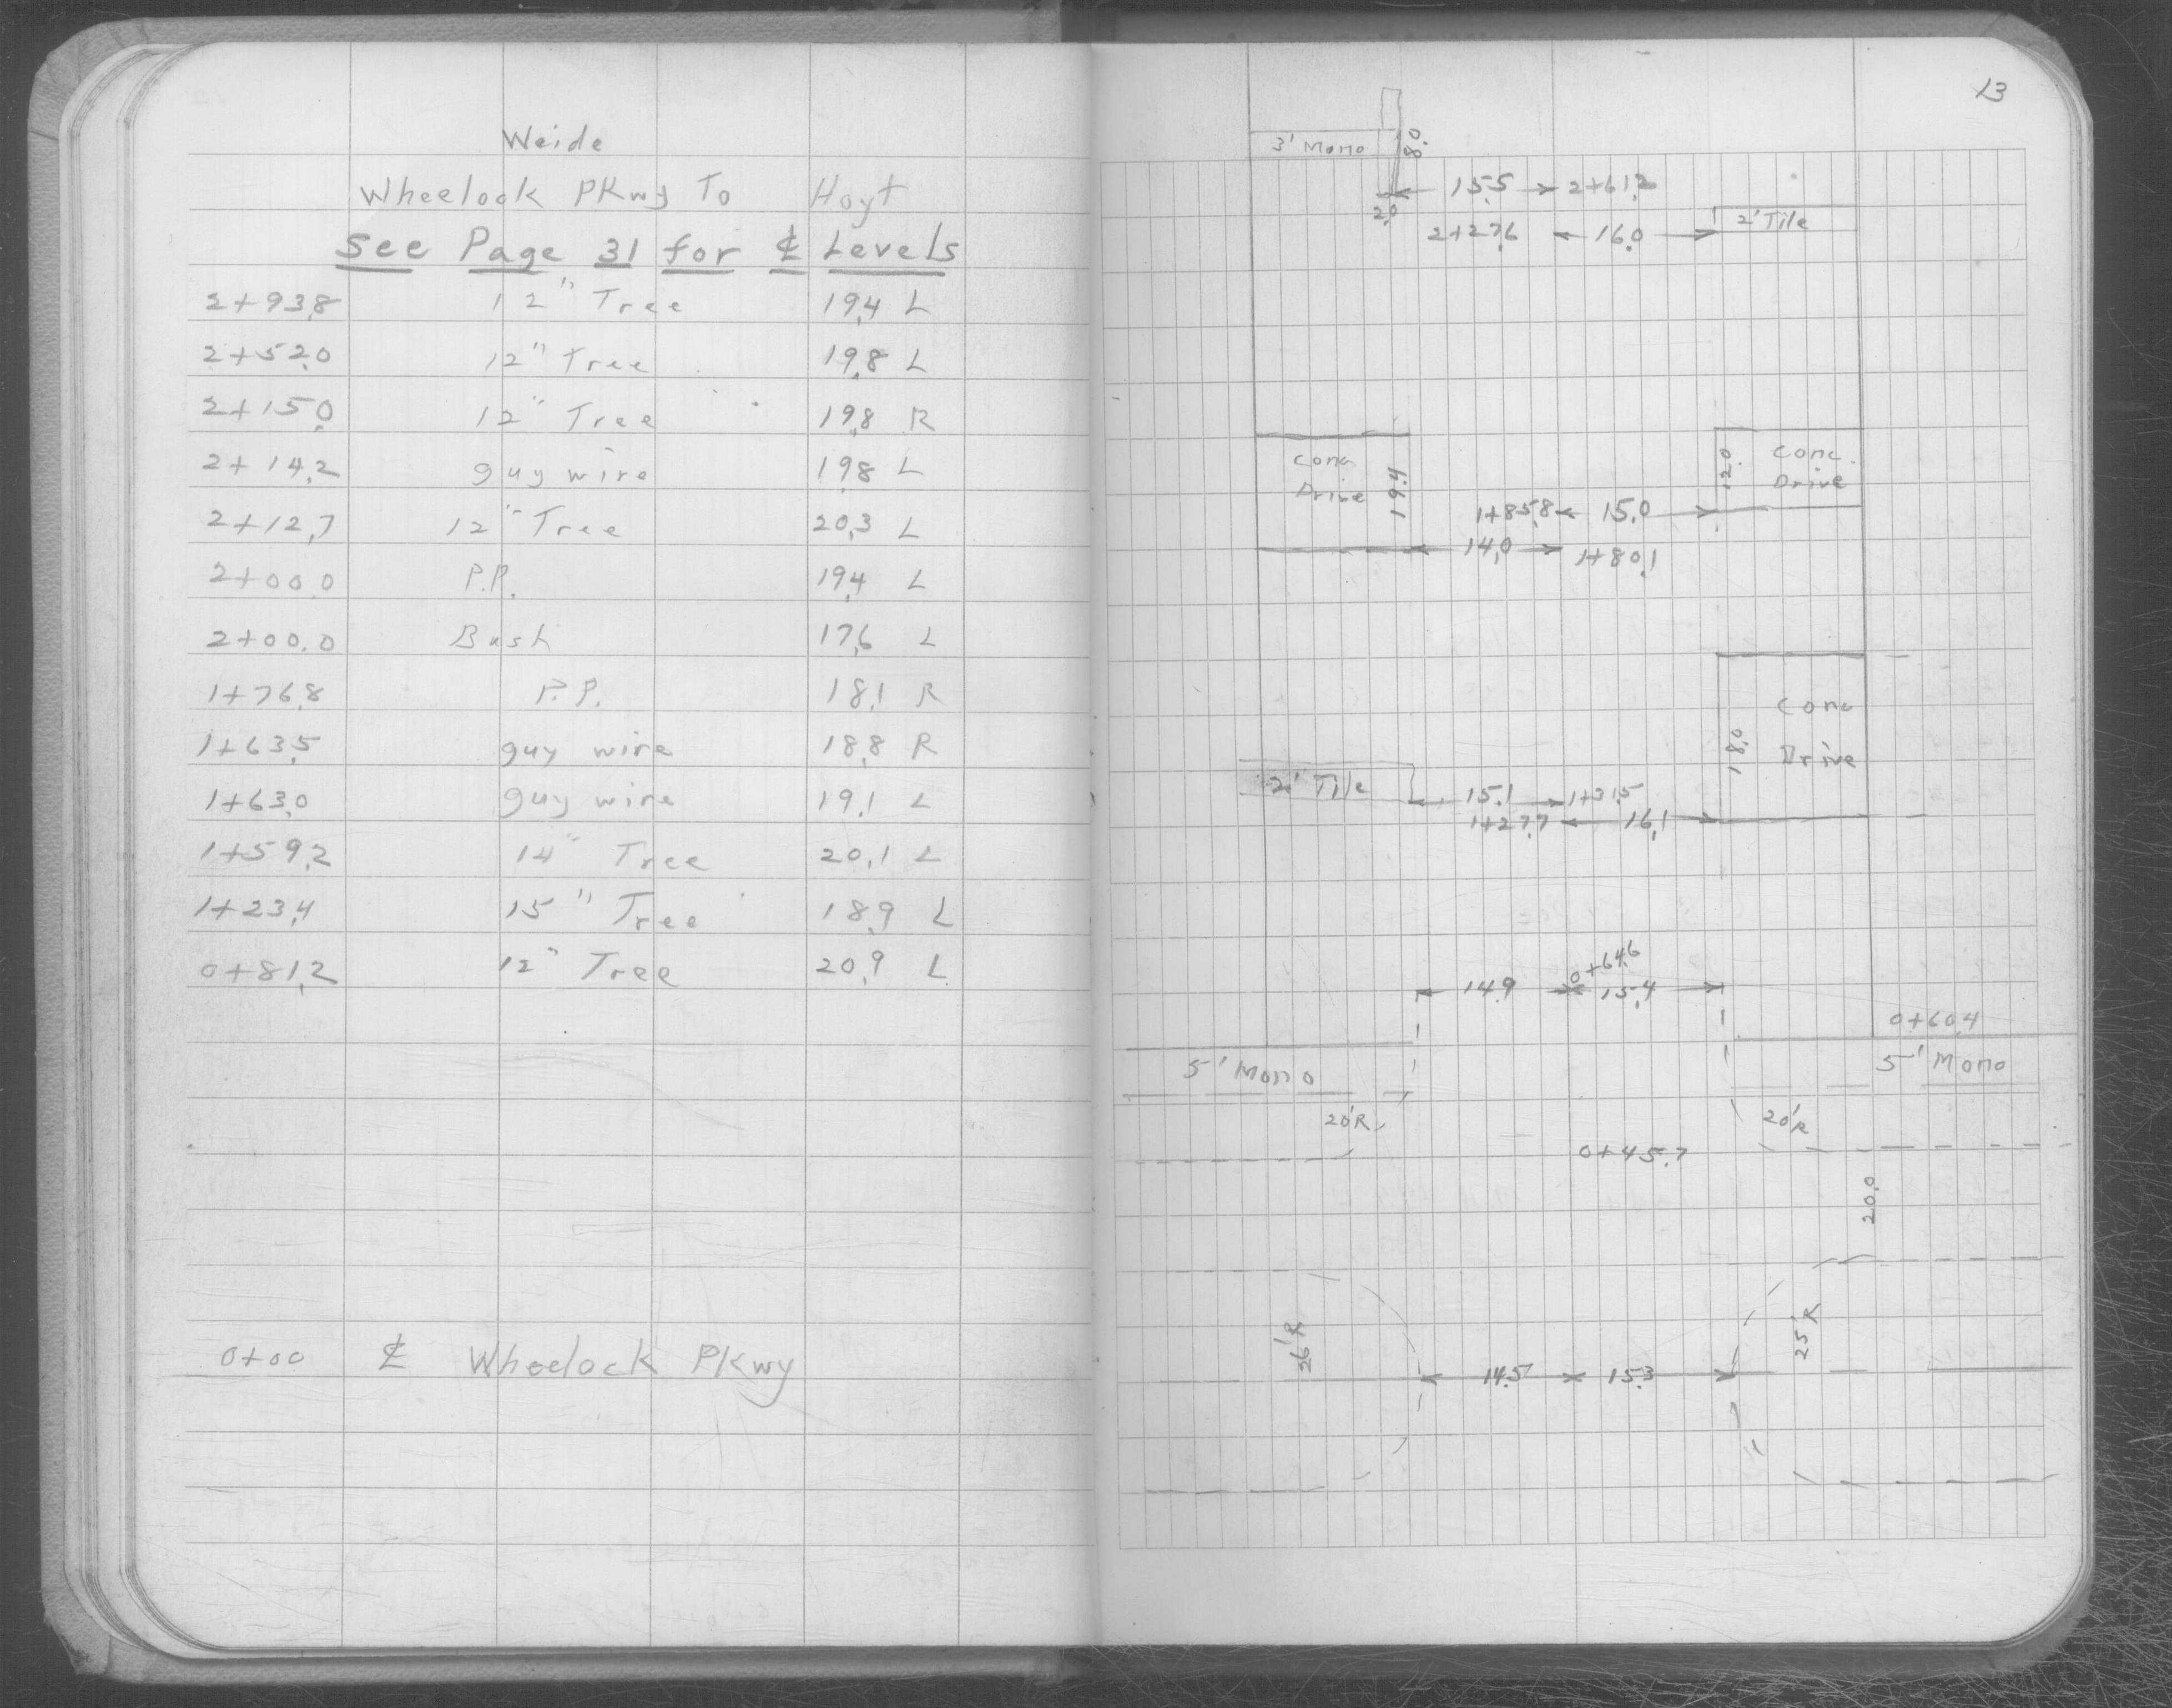 Weide
Wheelock PKwy To Hoyt
See Page 31 for ℄ Levels
2+93.8 12" Tree 19.4 L
2+52.0 12" Tree 19.8 L
2+15.0 12" Tree 19.8 R
2+14.2 guy wire 19.8 L
2+12.7 12" Tree 20.3 L
2+00.0 P.P. 19.4 L
2+00.0 Bush 17.6 L
1+76.8 P.P. 18.1 R
1+63.5 guy wire 18.8 R
1+63.0 guy wire 19.1 L
1+59.2 14" Tree 20.1 L
1+23.4 15" Tree 18.9 L
0+81.2 12" Tree 20.9 L
0+00 ℄ Wheelock PKwy
13
3' Mono 8.0
15.5 2+61.2
2.0
2+27.6 16.0 2' Tile
Conc. Drive 19.4
12.0 Conc. Drive
1+85.8 15.0
14.0 1+80.1
18.0 Conc Drive
2' Tile 15.1 1+31.5
1+27.7 16.1
0+64.6
14.9 15.4
0+60.4
5' Mono 5' Mono
20'R 20'R
0+45.7
20.0
26'R 25'R
14.5 15.3